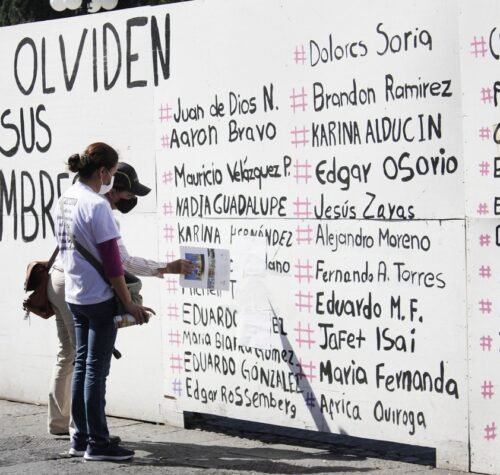 OLVIDEN
SUS
MBRE
# Juan de Dios N.
# Aaron Bravo
# Mauricio Velázquez P.
# NADIA GUADALUPE
# KARINA HERNÁNDEZ
EDUARDO
# Maria
# EDUARDO GONZALEZ
# Edgar Rossemberg
# Dolores Soria
# Brandon Ramirez
# KARINA ALDUCIN
# Edgar Osorio
# Jesús Zayas
# Alejandro Moreno
# Fernando A. Torres
# Eduardo M.F.
# Jafet Isai
# Maria Fernanda
# Africa Quiroga